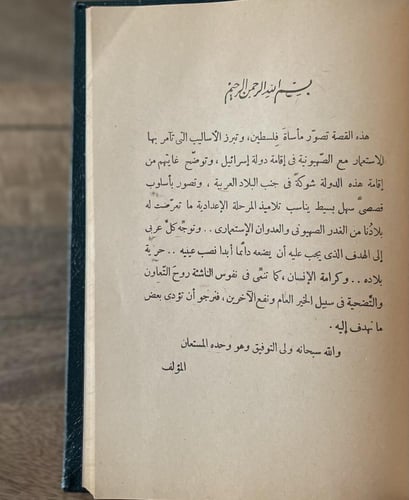 بسم الله الرحمن الرحيم
هذه القصة تصوّر مأساة فلسطين، وتبرز الأساليب التى تآمر بها
الاستعمار مع الصهيونية فى إقامة دولة إسرائيل ، وتوضّح غايتهم من
إقامة هذه الدولة شوكة فى جنب البلاد العربية ، وتصور بأسلوب
قصصىّ سهل بسيط يناسب تلاميذ المرحلة الإعدادية ما تعرّضت له
بلادُنا من الغدر الصهيونى والعدوان الإستعمارى . . وتوجّه كلَّ عربى
إلى الهدف الذى يجب عليه أن يضعه دائما أبدا نصب عينيه . . حرية
بلاده . . وكرامة الإنسان ، كما تنمّى فى نفوس الناشئة روحَ التّعاون
والتّضحية فى سبيل الخير العام ونفع الآخرين ، فنرجو أن تؤدى بعض
ما نهدف إليه .
والله سبحانه ولى التوفيق وهو وحده المستعان
المؤلف